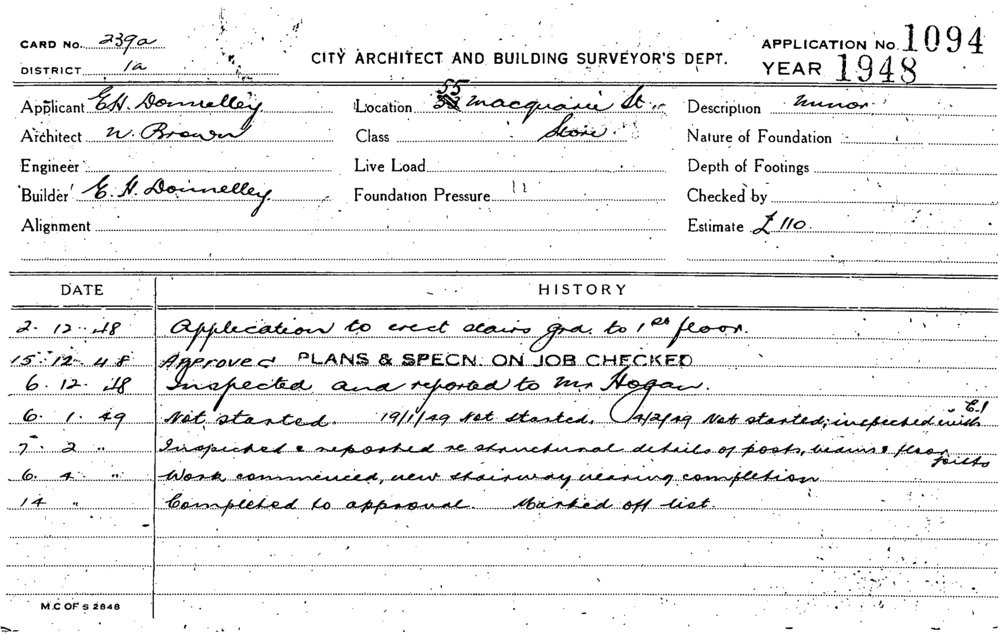 CARD No. 239a
DISTRICT 1a
CITY ARCHITECT AND BUILDING SURVEYOR'S DEPT.
APPLICATION No. 1094
YEAR 1948
Applicant E.H. Donnelley
Architect W. Brown
Engineer
Builder E. H. Donnelley
Alignment
Location 55 Macquarie St.
Class Store
Live Load
Foundation Pressure
Description Minor
Nature of Foundation
Depth of Footings
Checked by
Estimate £ 110.
DATE HISTORY
2. 12. 48 Application to erect stairs grd. to 1st floor.
15. 12. 48 Approved PLANS & SPECN. ON JOB CHECKED
6. 12. 48 Inspected and reported to Mr Hogan.
6. 1. 49 Not started. 19/1/49 Not Started. 4/2/49 Not started; inspected with C.I
7. 2 " Inspected & reported re structural details of posts, beams & floor joists
6. 4 " Work commenced, new stairway nearing completion
14 " Completed to approval. Marked off list.
M.C OF S 2848